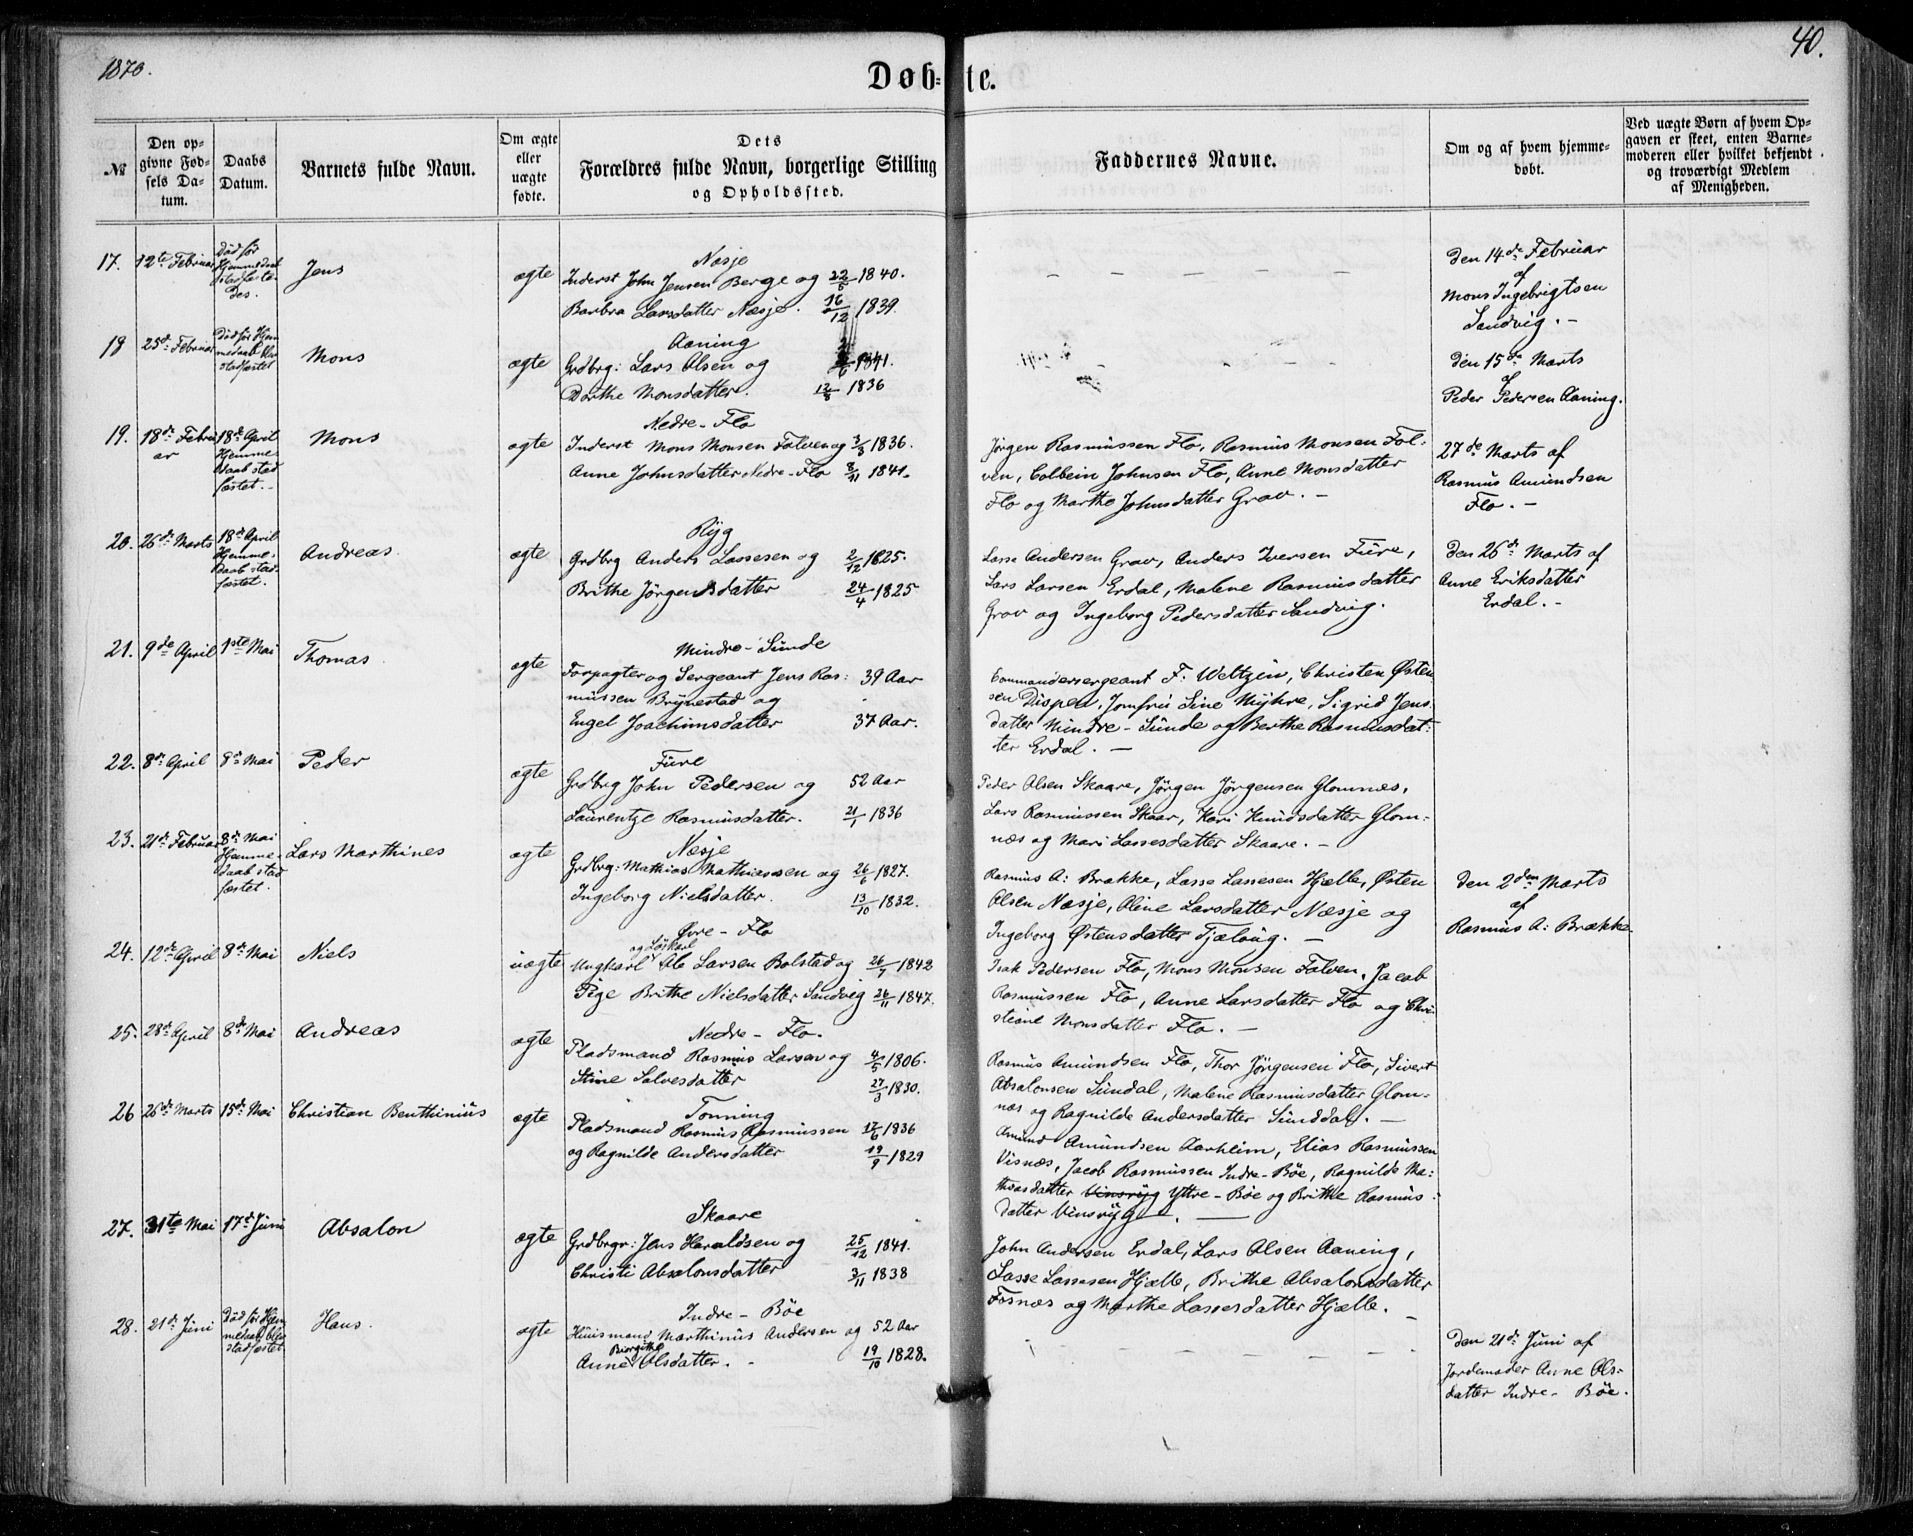 1870.
40.
Døb=te.
№
Den op-
givne Fød-
sels Da-
tum.
Daabs
Datum.
Barnets fulde Navn.
Om ægte
eller
uægte
fødte.
Dets
Forældres fulde Navn, borgerlige Stilling
og Opholdssted.
Faddernes Navne.
Om og af hvem hjemme-
døbt.
Ved uægte Børn af hvem Op-
gaven er skeet, enten Barne-
moderen eller hvilket bekjendt
og troværdigt Medlem
af Menigheden.
17. 12te Februar
Død før
Hjemmedaab
stadfæste-
des.
Jens
ægte
Næsje
Inderst John Jensen Berge og 22/5 1840.
Barbra Larsdatter Næsje. 16/12 1839.
– – – – –
Den 14de Februar
af
Mons Ingebrigtsen
Sandvig. –
18 25de Februar
Død før Hjem
medaab blev
stadfæstet
Mons
ægte
Aaning
Grdbrg: Lars Olsen og 1841.
Dorthe Monsdatter. 12/8 1836
Den 15de Marts
af
Peder Pedersen Aaning.
19. 18de Febru
ar
18de April
Hjemme-
daab stad
fæstet. –
Mons
ægte
Nedre – Flo
Inderst Mons Monsen Falven og 3/3 1836.
Anne Johnsdatter Nedre – Flo 8/11 1841.
Jørgen Rasmussen Flo, Rasmus Monsen Fol-
ven, Colbein Johnsen Flo, Anne Monsdatter
Flo og Marthe Johnsdatter Grav. –
27de Marts af
Rasmus Amundsen
Flo. –
20. 26de Marts
18de April
Hjemme-
daab stad
fæstet.
Andreas
ægte
Ryg
Grdbrg Anders Lassesen og 2/12 1825.
Brithe Jørgensdatter 24/4 1825
Lasse Andersen Grav, Anders Iversen Fure,
Lars Larsen Erdal, Malene Rasmusdatter
Grav og Ingeborg Pedersdatter Sandvig.
Den 26de Marts af
Anne Eriksdatter
Erdal. –
21. 9de April 1ste Mai
Thomas
ægte
Mindre – Sunde
Forpagter og Sergeant Jens Ras: 39 Aar
mussen Brynestad og
Engel Joachimsdatter 37 Aar.
Commandersergeant F. Weltzin, Christen Østen
sen Dispen, Jomfru Sine Myhre, Sigrid Jens
datter Mindre – Sunde og Berthe Rasmusdat-
ter Erdal. –
22. 8de April 8de Mai
Peder
ægte
Fure
Grdbrg John Pedersen og 52 Aar
Laurentze Rasmusdatter. 21/1 1836
Peder Olsen Skaare, Jørgen Jørgensen Glomnæs,
Lars Rasmussen Skaar, Kari Knudsdatter Glom-
næs og Mari Lassesdatter Skaare. –
23. 21de Februar
8de Mai
Hjemme-
daab stad
fæstet.
Lars Marthines
ægte
Næsje
Grdbrg: Mathias Mathiassen og 26/6 1827.
Ingeborg Nielsdatter. 13/10 1832.
Rasmus A: Brække, Lasse Lassesen Hjelle, Østen
Olsen Næsje, Oline Larsdatter Næsje og
Ingeborg Østensdatter Tjælaug. –
Den 2den Marts
af
Rasmus A: Brække
24. 12te April 8de Mai
Niels
uægte
Øvre – Flo
og Løskarl
Ungkarl Ole Larsen Bolstad og 26/7 1842
Pige Brithe Nielsdatter Sandvig 26/11 1847.
Isak Pedersen Flo, Mons Monsen Falven, Jacob
Rasmussen Flo, Anne Larsdatter Flo og Chri-
stiane Monsdatter Flo. –
25. 28de April 8de Mai
Andreas
ægte
Nedre – Flo.
Pladsmand Rasmus Larsen og 4/5 1806.
Stine Salvesdatter 27/3 1830.
Rasmus Amundsen Flo, Thor Jørgensen Flo, Sivert
Absalonsen Sundal, Malene Rasmusdatter Glom-
næs og Ragnilde Andersdatter Sunddal. –
26 26de Marts 15de Mai
Christian Benthinius
ægte
Tonning
Pladsmand Rasmus Rasmussen 17/6 1836
og Ragnilde Andersdatter 19/9 1829
Amund Amundsen Aarheim, Elias Rasmussen
Visnæs, Jacob Rasmussen Indre – Bøe, Ragnilde Ma-
thiasdatter Vinsryg Yttre – Bøe og Brithe Rasmus-
datter Vinsryg. –
27. 31te Mai 17de Juni
Absalon
ægte
Skaare
Grdbrgr: Jens Haraldsen og 25/12 1841.
Christi Absalonsdatter 3/11 1838
John Andersen Erdal, Lars Olsen Aaning,
Lasse Lassesen Hjelle, Brithe Absalonsdatter
Fosnæs og Marthe Lassesdatter Hjælle.
28. 21de Juni
Død før Hjem
medaab blev
stadfæstet
Hans.
ægte
Indre – Bøe
Huusmand Marthinus Andersen og 52 Aar
Birgithe
Anne Olsdatter. 19/10 1828.
– – – – –
Den 21de Juni af
Jordemoder Anne Ols-
datter Indre – Bøe.